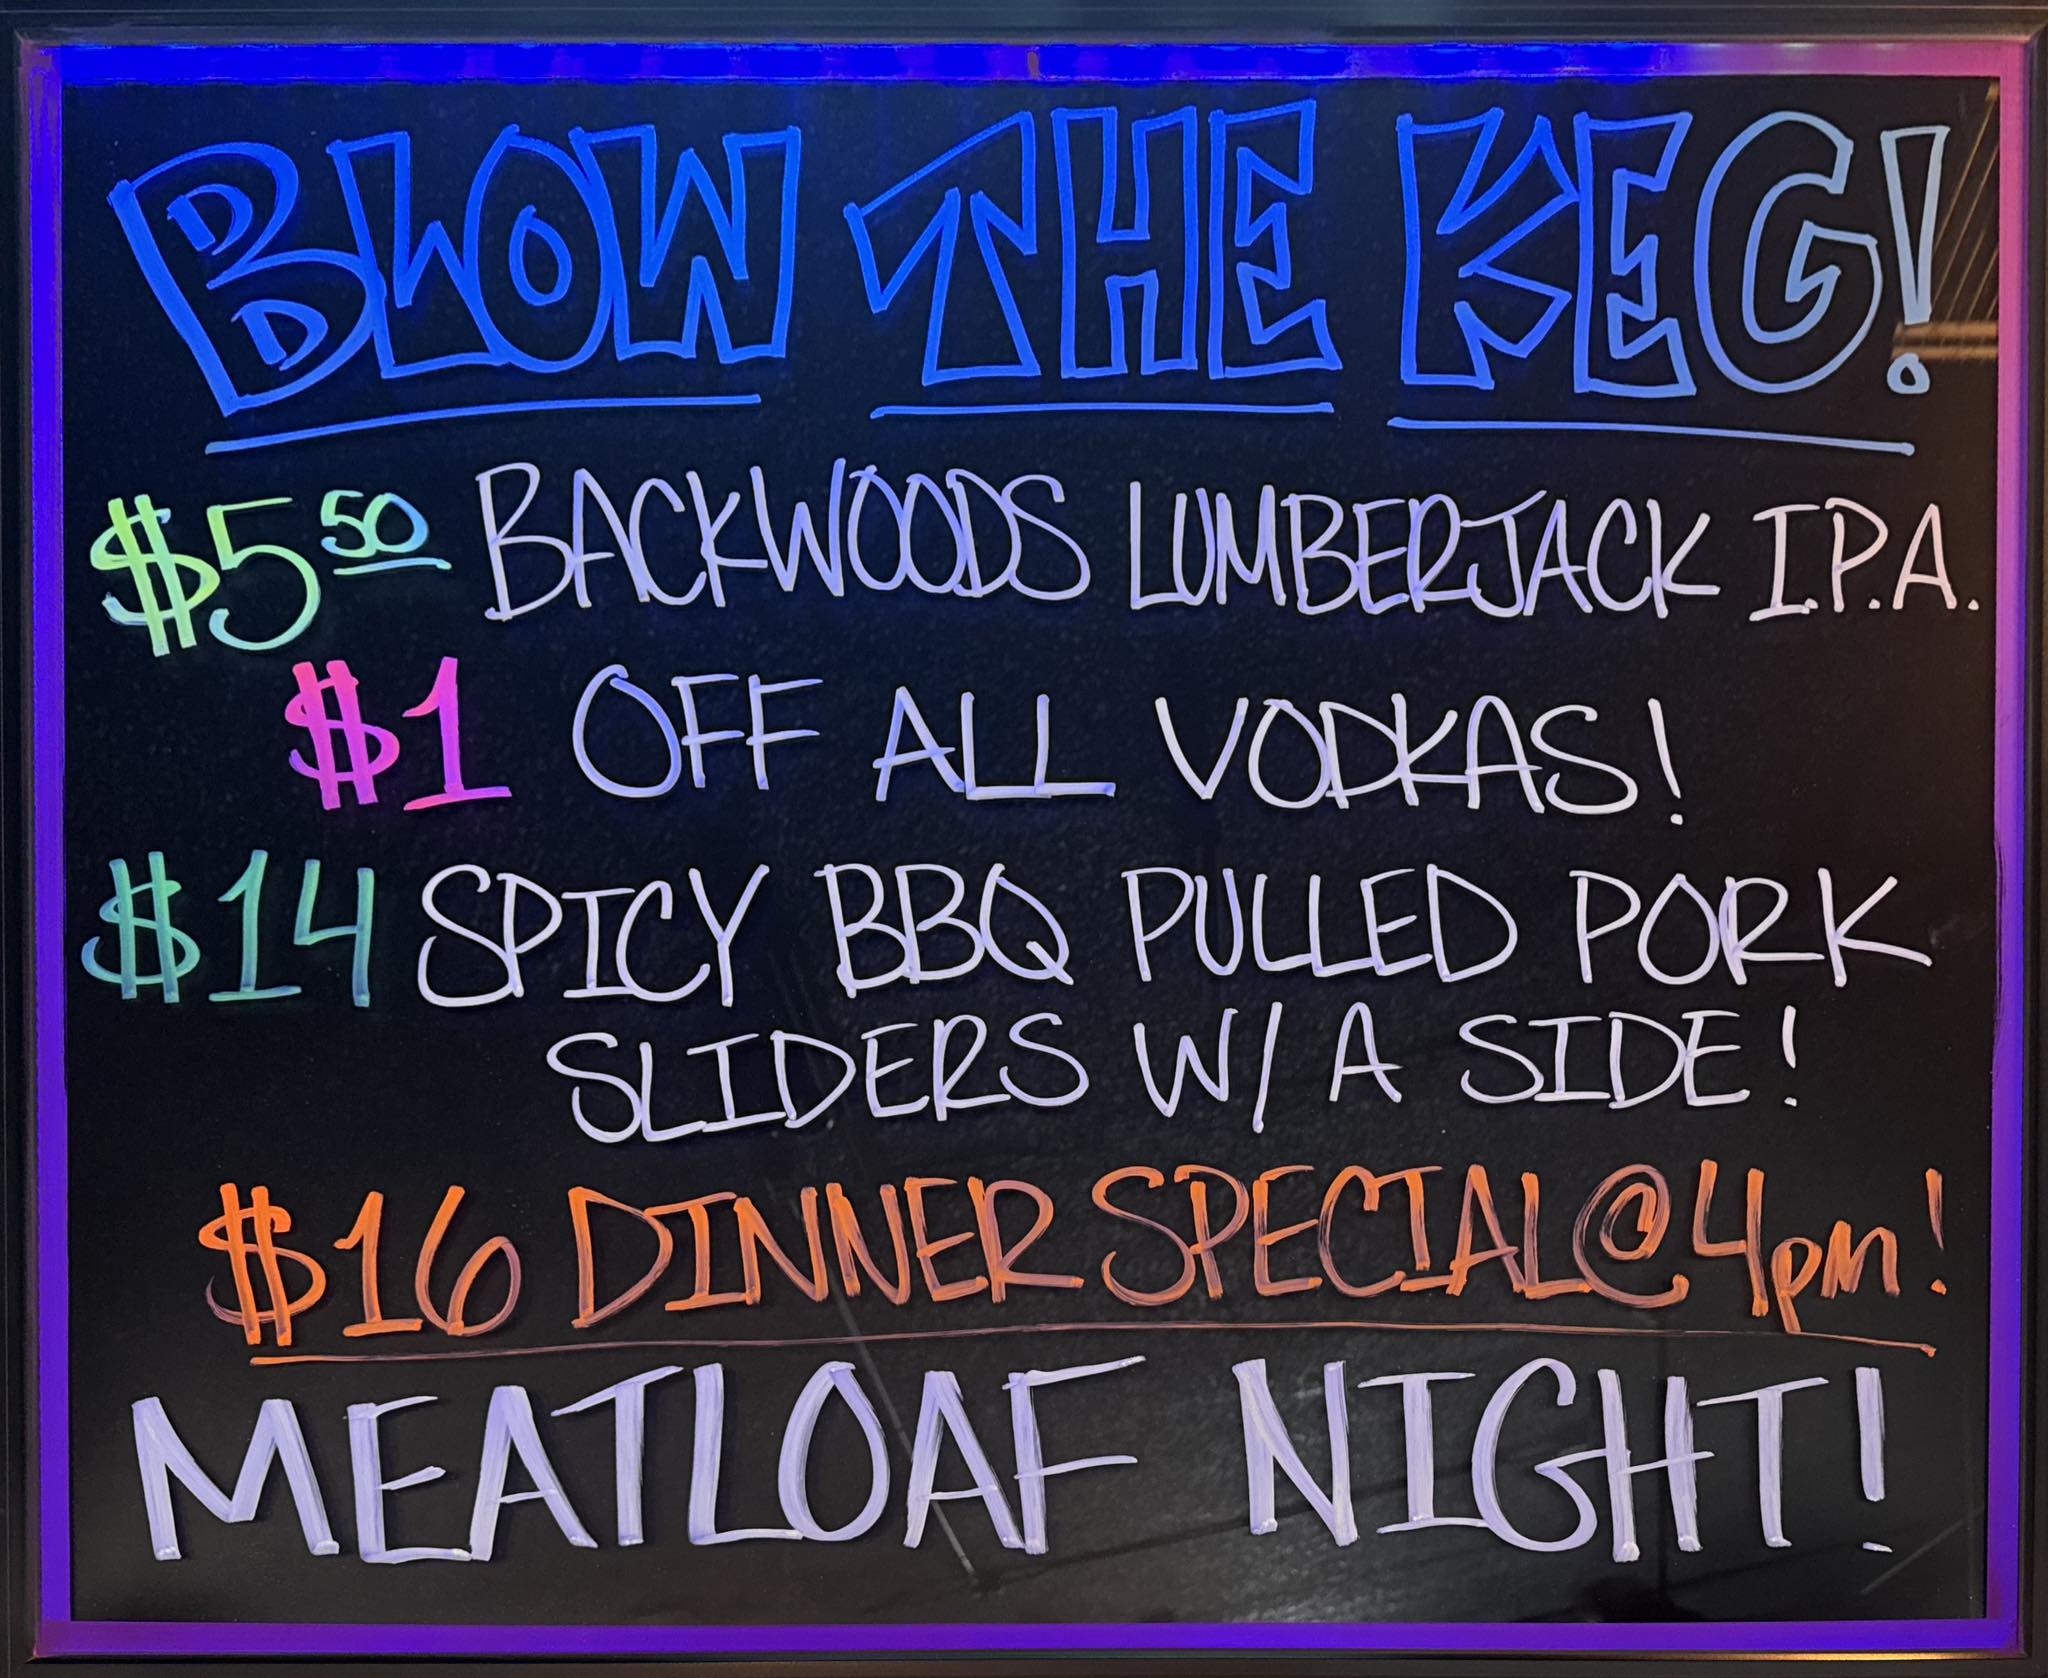 BLOW THE KEG!
$5 50 BACKWOODS LUMBERJACK I.P.A.
$1 OFF ALL VODKAS!
$14 SPICY BBQ PULLED PORK
SLIDERS W/ A SIDE!
$16 DINNER SPECIAL @ 4pm!
MEATLOAF NIGHT!